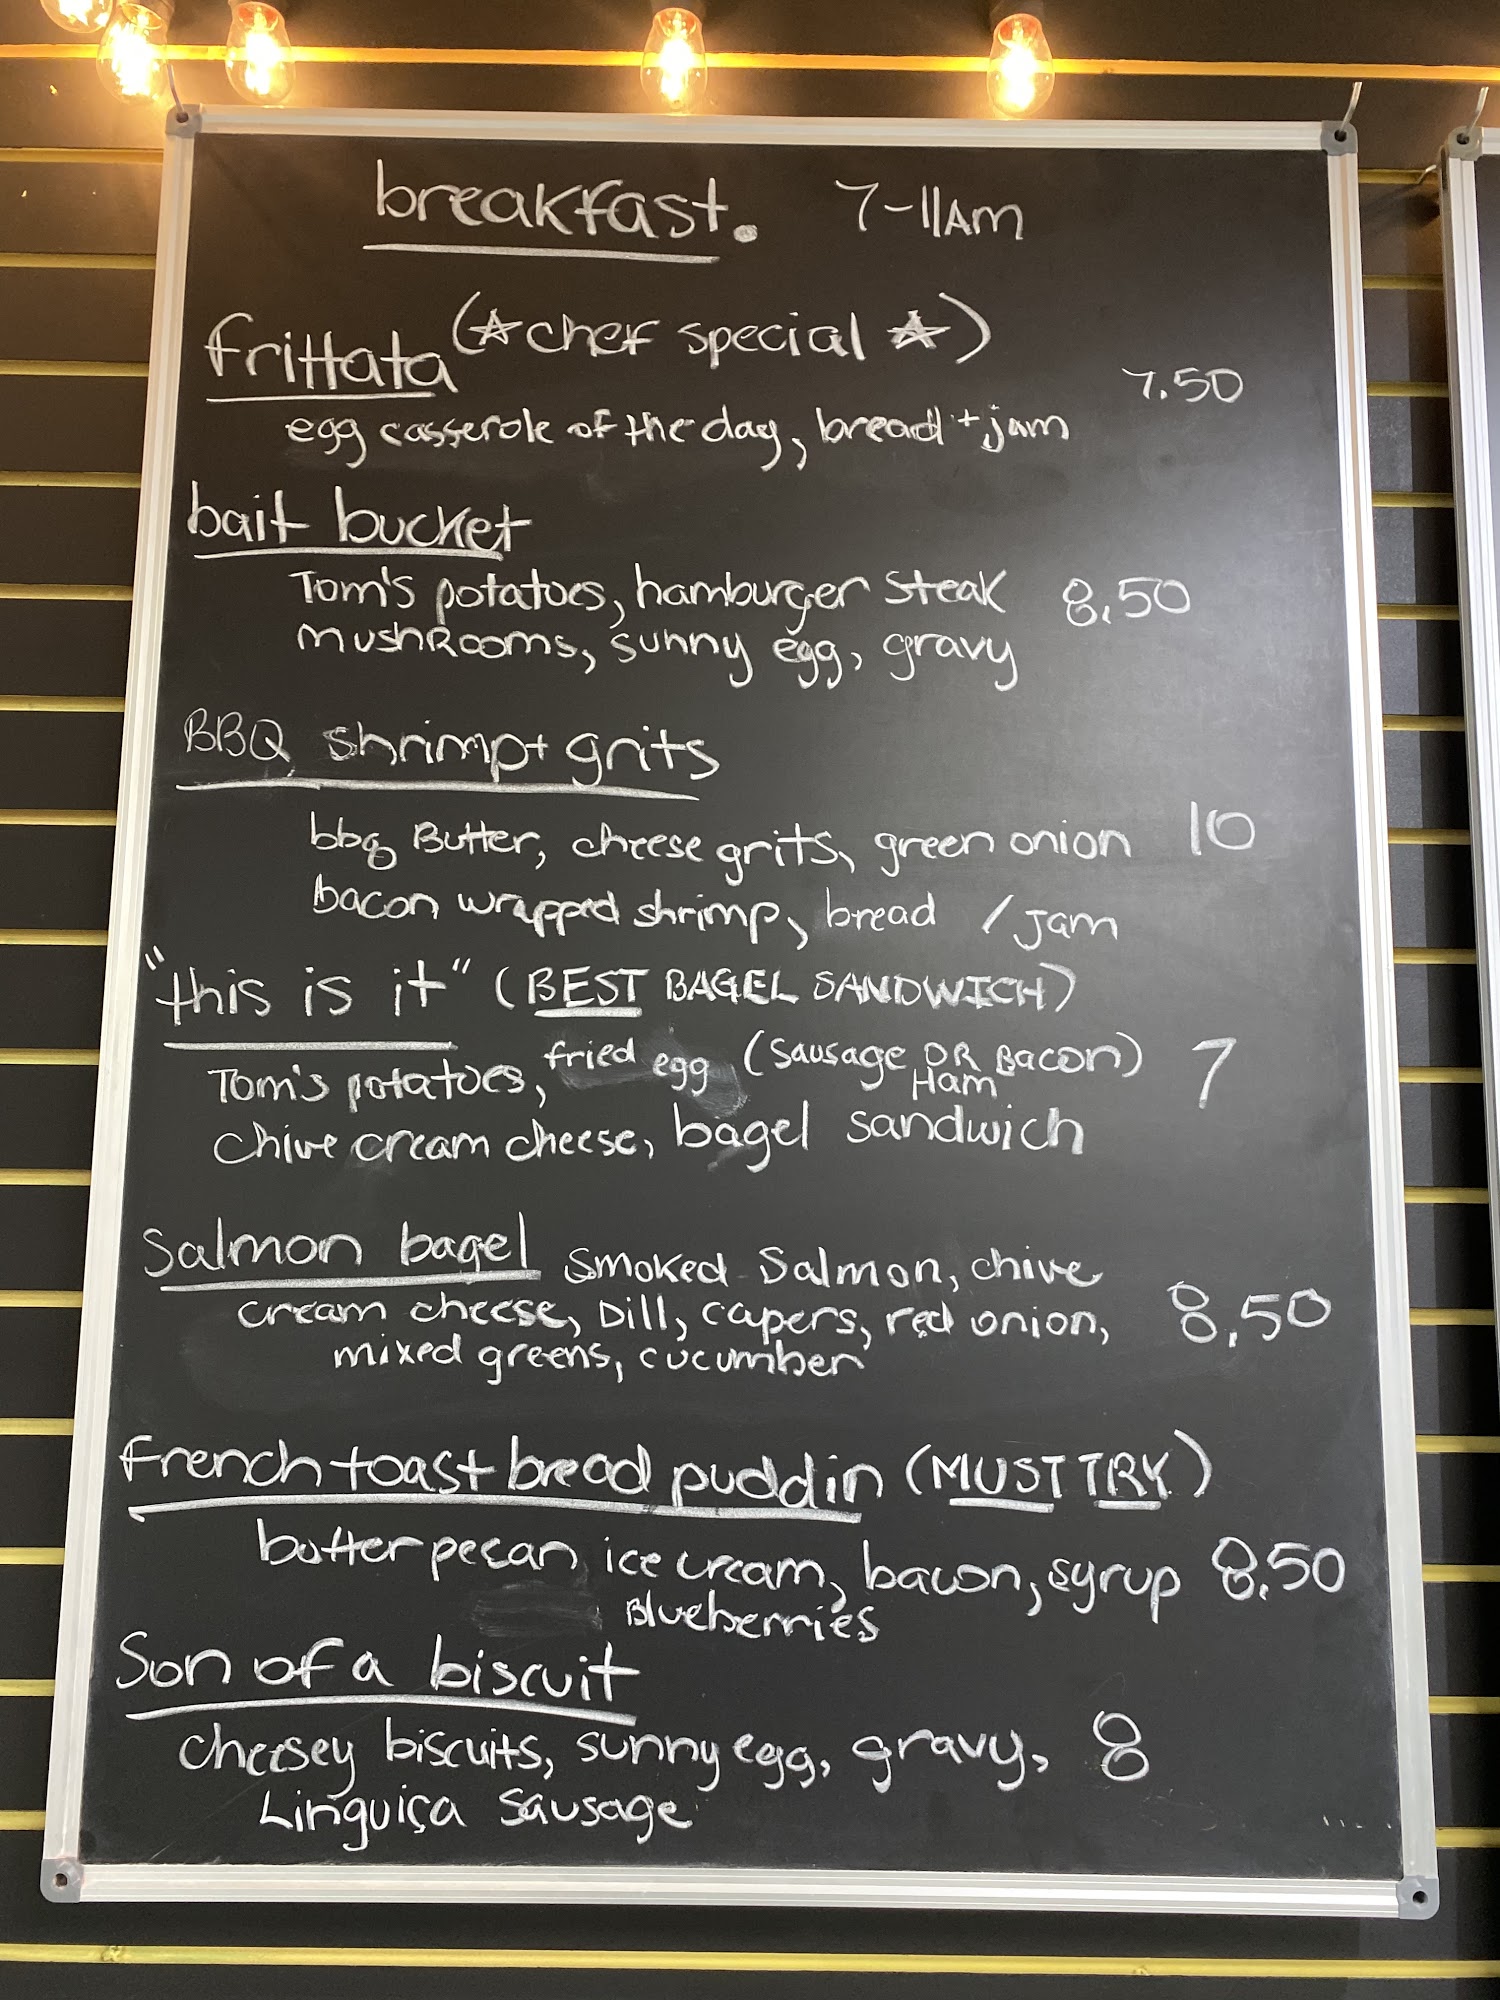 breakfast. 7-11AM
frittata (☆chef special ☆)
7.50
egg casserole of the day, bread + jam
bait bucket
Tom's potatoes, hamburger steak 8.50
mushRooms, sunny egg, gravy
BBQ shrimp + grits
bbq Butter, cheese grits, green onion 10
bacon wrapped shrimp, bread / jam
"this is it" (BEST BAGEL SANDWICH)
Tom's potatoes, fried egg (Sausage OR Bacon) 7
Ham
chive cream cheese, bagel sandwich
Salmon bagel smoked Salmon, chive
cream cheese, Dill, capers, red onion, 8.50
mixed greens, cucumber
french toast bread puddin (MUST TRY)
butter pecan ice cream, bacon, syrup 8.50
Blueberries
Son of a biscuit
cheesey biscuits, sunny egg, gravy, 8
Linguiça Sausage